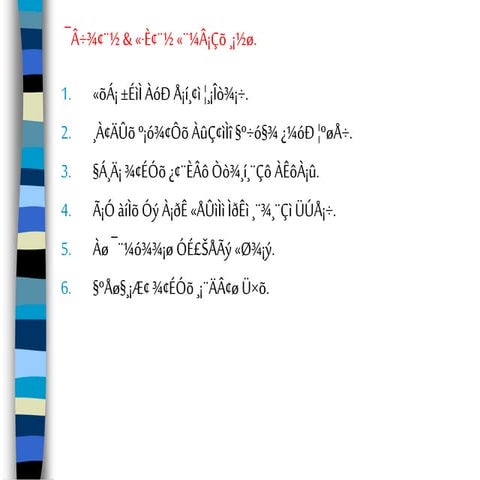 ¯Â÷¾¢¨½ & «·È¢¨½ «¨¼Â¡Çõ ¸¡½ø.
1. «õÁ¡ ±ÉìÌ ÀóÐ Å¡í¸¢ì ¦¸¡Îò¾¡÷.
2. ¸À¢ÄÛõ º¡ó¾¢Ôõ ÀûÇ¢ìÌî §º÷ó§¾ ¿¼óÐ ¦ºøÅ÷.
3. §Á¸Ä¡ ¾¢ÉÓõ ¿¢¨ÈÂô Òò¾¸í¸¨Çô ÀÊôÀ¡û.
4. Ã¡Ó àíÌõ Óý À¡ðÊ «ÅÛìÌì ÌðÊì ¸¨¾¸¨Çì ÜÚÅ¡÷.
5. Àø ¯¨¼ó¾¾¡ø ÓÉ£ŠÅÃý «Ø¾¡ý.
6. §ºÅø§¸¡Æ¢ ¾¢ÉÓõ ¸¡¨ÄÂ¢ø Ü×õ.